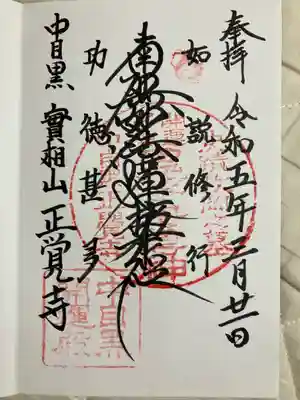 奉拝 令和五年三月廿一日
如説修行
南無妙法蓮華経
功徳甚多
中目黒 實相山 正覚寺